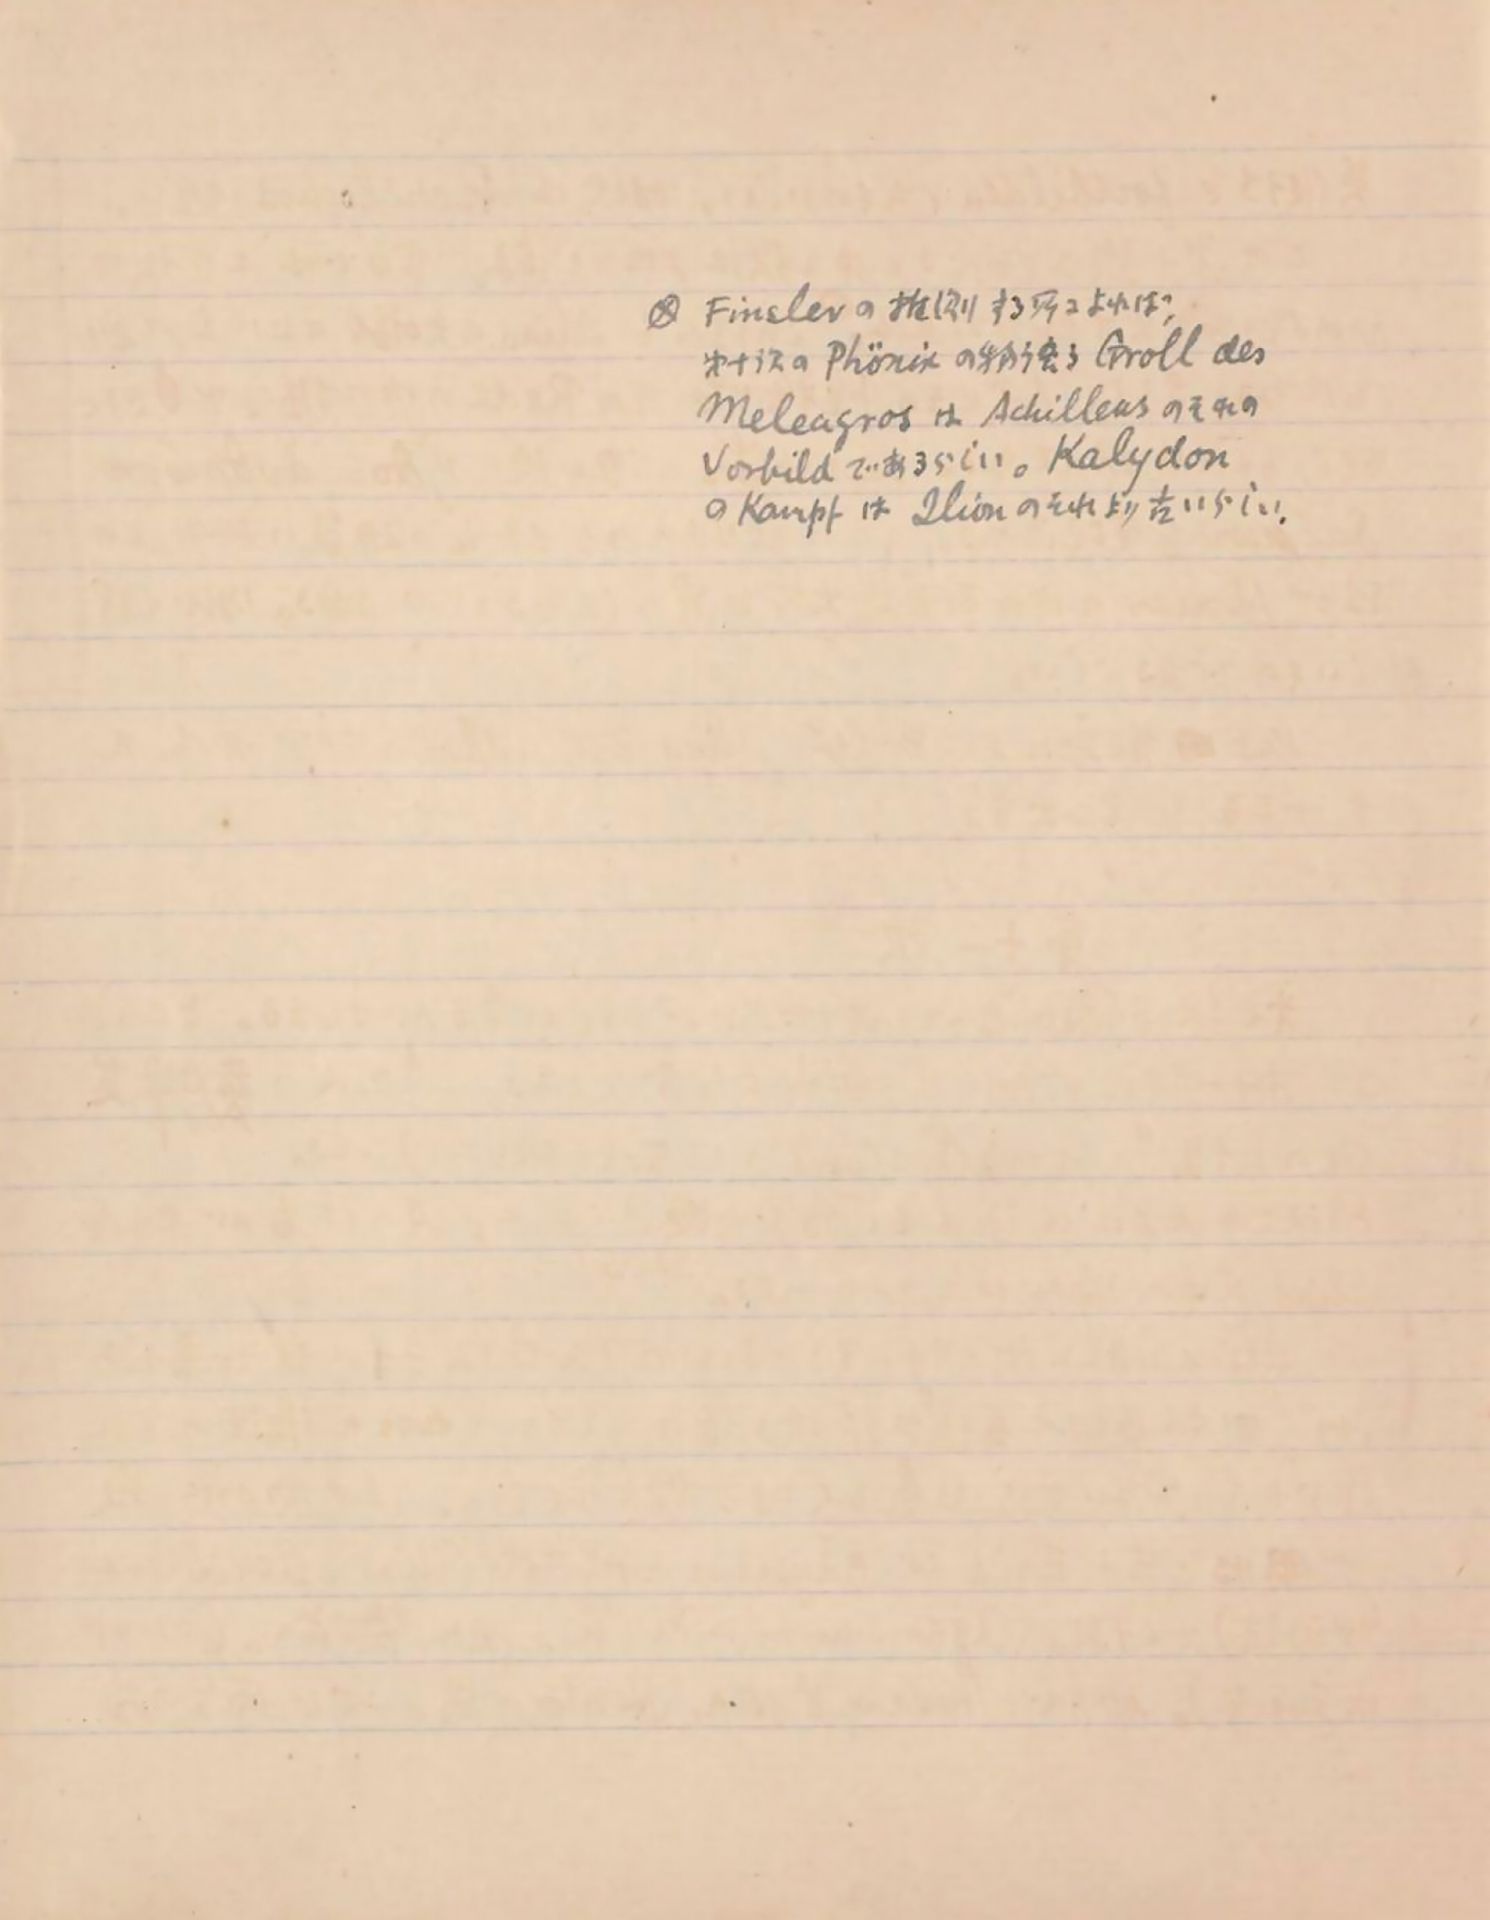 ⊗ Finslerの推測する所によれば、
第十次のPhönixの物語るGroll des
MeleagrosはAchilleusのそれの
Vorbildであるらしい。Kalydon
のKampfはIlionのそれより古いらしい。